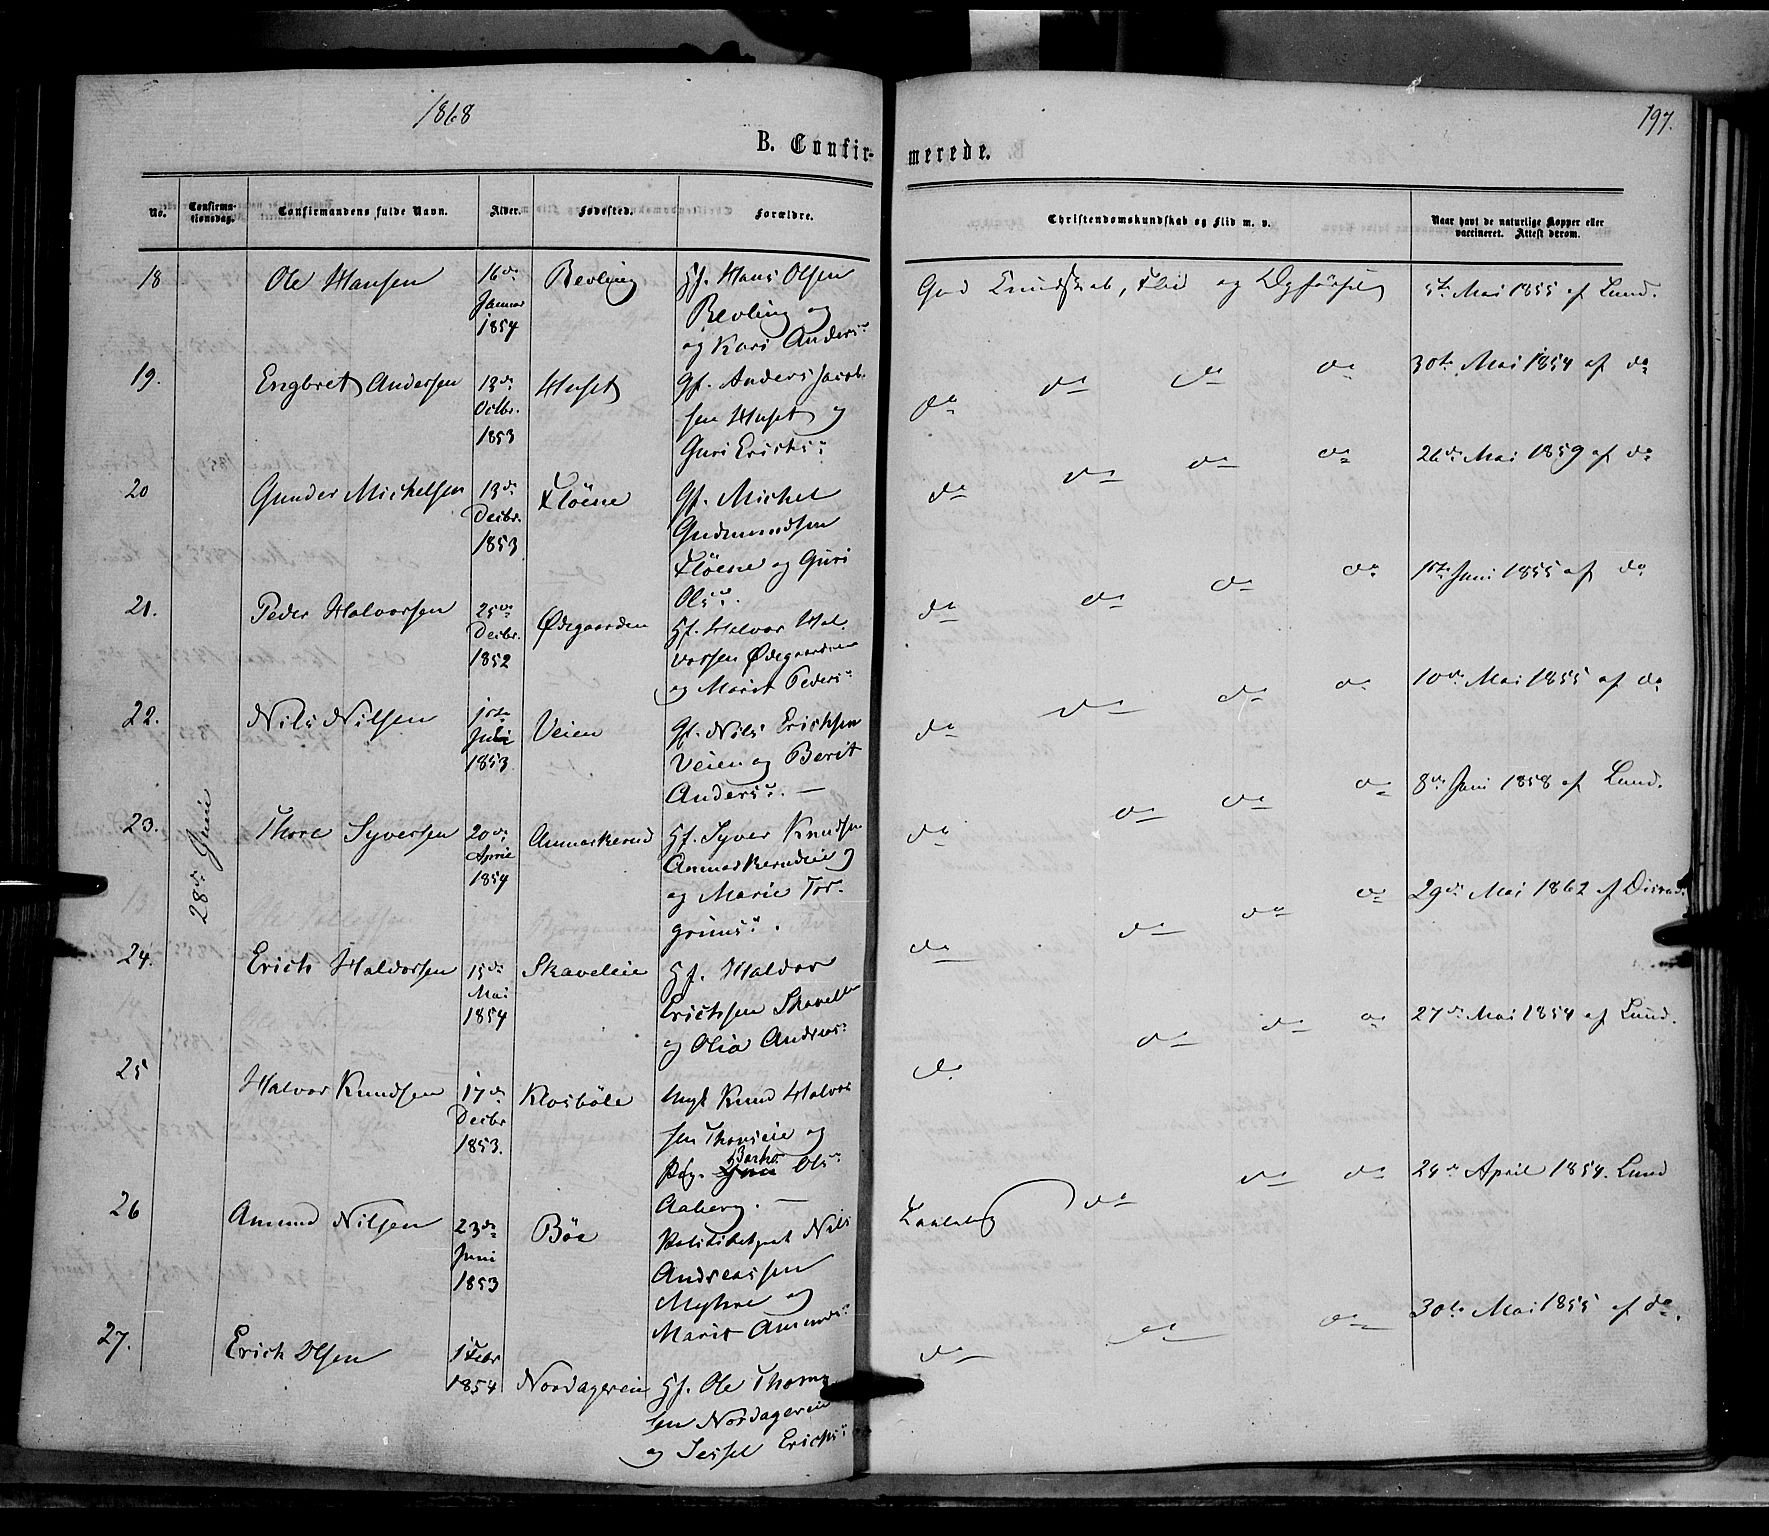 1868
197.
B. Confir-
merede.
No.
Confirma-
tionsdag.
Confirmandens fulde Navn.
Alder.
Fødested.
Forældre.
Christendomskundskab og Flid m. v.
Naar havt de naturlige Kopper eller
vaccineret. Attest derom.
28de Juni
18 Ole Hansen 16de Bevling Gf. Hans Olsen God Kundskab, Flid og Opførsel 5te Mai 1855 af Lund.
Januar Bevling og
1854 og Kari Anders:
19. Engbret Andersen 13de Huset Gf. Anders Jacob- do do do do 30te Mai 1854 af do
Octbr. sen Huset og
1853 Guri Erichs:
20 Gunder Michelsen 13de Fløene Gf. Michel do do do do 26de Mai 1859 af do
Decbr. Gudmundsen
1853 Fløene og Guri
Ols:
21. Peder Halvorsen 25de Ødegaarden Hf. Halvor Hal- do do do do 1ste Juni 1855 af do
Decbr. vorsen Ødegaarden
1852 og Marit Peders:
22. Nils Nilsen 1ste Veien Gf. Nils Erichsen do do do do 10de Mai 1855 af do
Juli Veien og Berit
1853 Anders:
23. Thore Syversen 20de Aamaskerud Hf. Syver Knudsen do do do do 8de Juni 1858 af Lund.
April
1854 og Marie Tor-
grims:
24. Erich Haldorsen 15de Skaveleie Hf. Haldor do do do do 29de Mai 1862 af
Mai Erichsen
1854 og Olia Anders:
25 Halvor Knudsen 17de Klosbøle Ungk. Knud Halvor do do do do 27de Mai 1854 af Lund.
Decbr sen Thonseie og
1853. Pig. Ols:
Aaberg.
26 Amund Nilsen 23de Bøe Politibetjent Nils do do do 24de April 1854. Lund
Juni Andreassen
1853 Myhre og
Marit Amunds:
27. Erich Olsen 1 Febr Nordagereie Hf. Ole Thom do do do 30te Mai 1855 af do.
1854 sen Nordagereie
og Sessel Erichs: